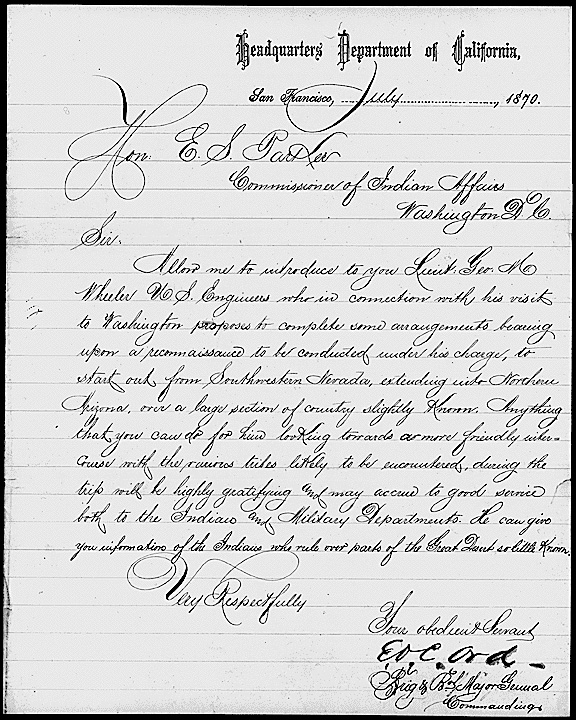 Headquarters Department of California,
San Francisco, July, 1870.
Hon. E. S. Parker
Commissioner of Indian Affairs
Washington D. C.
Sir.
Allow me to introduce to you Lieut. Geo. M
Wheeler U. S. Engineers who in connection with his visit
to Washington proposes to complete some arrangements bearing
upon a reconnaissance to be conducted under his charge, to
start out from Southwestern Nevada, extending into Northern
Arizona, over a large section of country slightly Known. Anything
that you can do for him looking towards a more friendly inter=
course with the various tribes likely to be encountered, during the
trip will be highly gratifying and may accrue to good service
both to the Indian and Military Departments. He can give
you information of the Indians who rule over parts of the Great Desert so little Known.
Very Respectfully
Your obedient Servant
E.O.C. Ord
Brig & Bt Major General
Commanding.